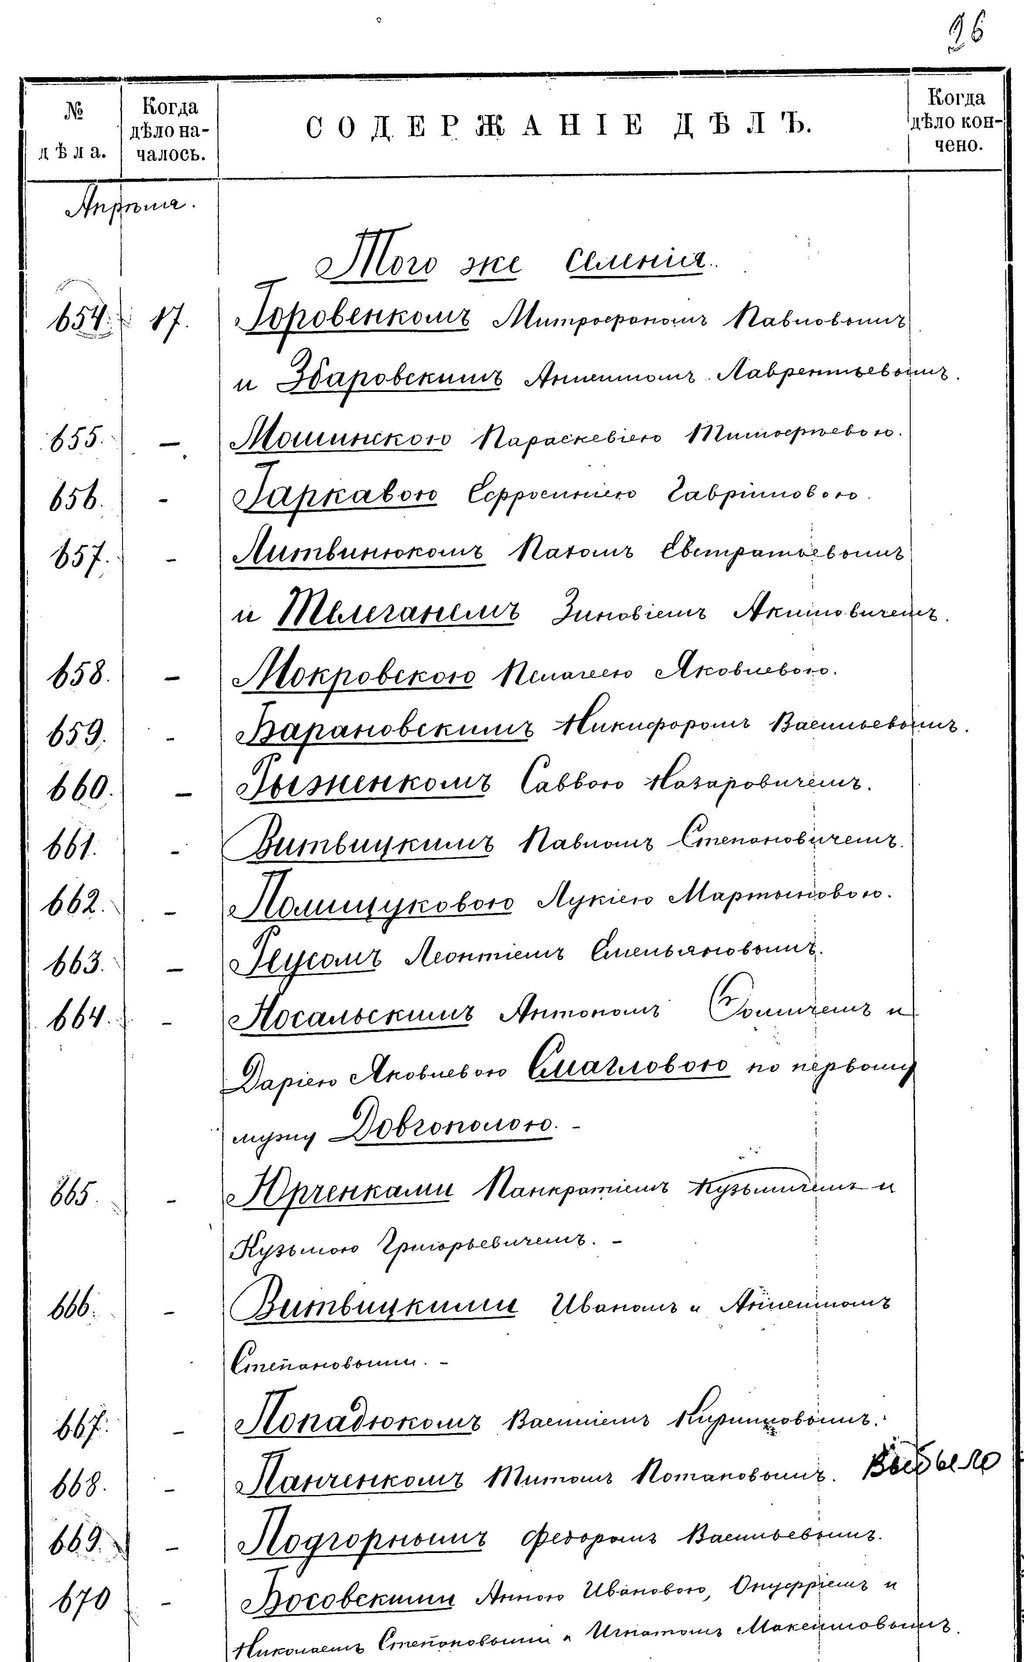 26
№ дѣла.
Когда дѣло началось.
СОДЕРЖАНІЕ ДѢЛЪ.
Когда дѣло кончено.
Апрѣля.
Того же селенія.
654. 17. Горовенкомъ Митрофаномъ Павловымъ
и Збаровскимъ Лаврентьевымъ.
655. — Мошинскою Параскевіею Тимофѣевою.
656. - Гаркавою Ефросиніею Гавріиловою.
657. - Литвинюкомъ Евстратьевымъ
и Телеганемъ Зиновіемъ Акимовичемъ.
658. — Мокровскою Пелагеею Яковлевою.
659. - Барановскимъ Никифоромъ Васильевымъ.
660. — Рыженкомъ Саввою Назаровичемъ.
661. - Витвицкимъ Павломъ Степановичемъ.
662. - Полищуковою Лукіею Мартыновою.
663. — Реусомъ Леонтіемъ Емельяновымъ.
664. - Носальскимъ Антономъ Фомичемъ и
Даріею Яковлевою Смагловою по первому
мужу Довгополою. -
665. - Юрченками Панкратіемъ Кузьмичемъ и
Кузьмою Григорьевичемъ. -
666. - Витвицкими Иваномъ и
Степановыми. -
667. - Попадюкомъ Василіемъ Кирилловымъ.
668. - Панченкомъ Титомъ Потаповымъ. Выбыло
669. - Подгорнымъ Федоромъ Васильевымъ.
670 - Босовскими Анною Ивановою, Онуфріемъ и
Николаемъ Степановыми и Игнатомъ Максимовымъ.